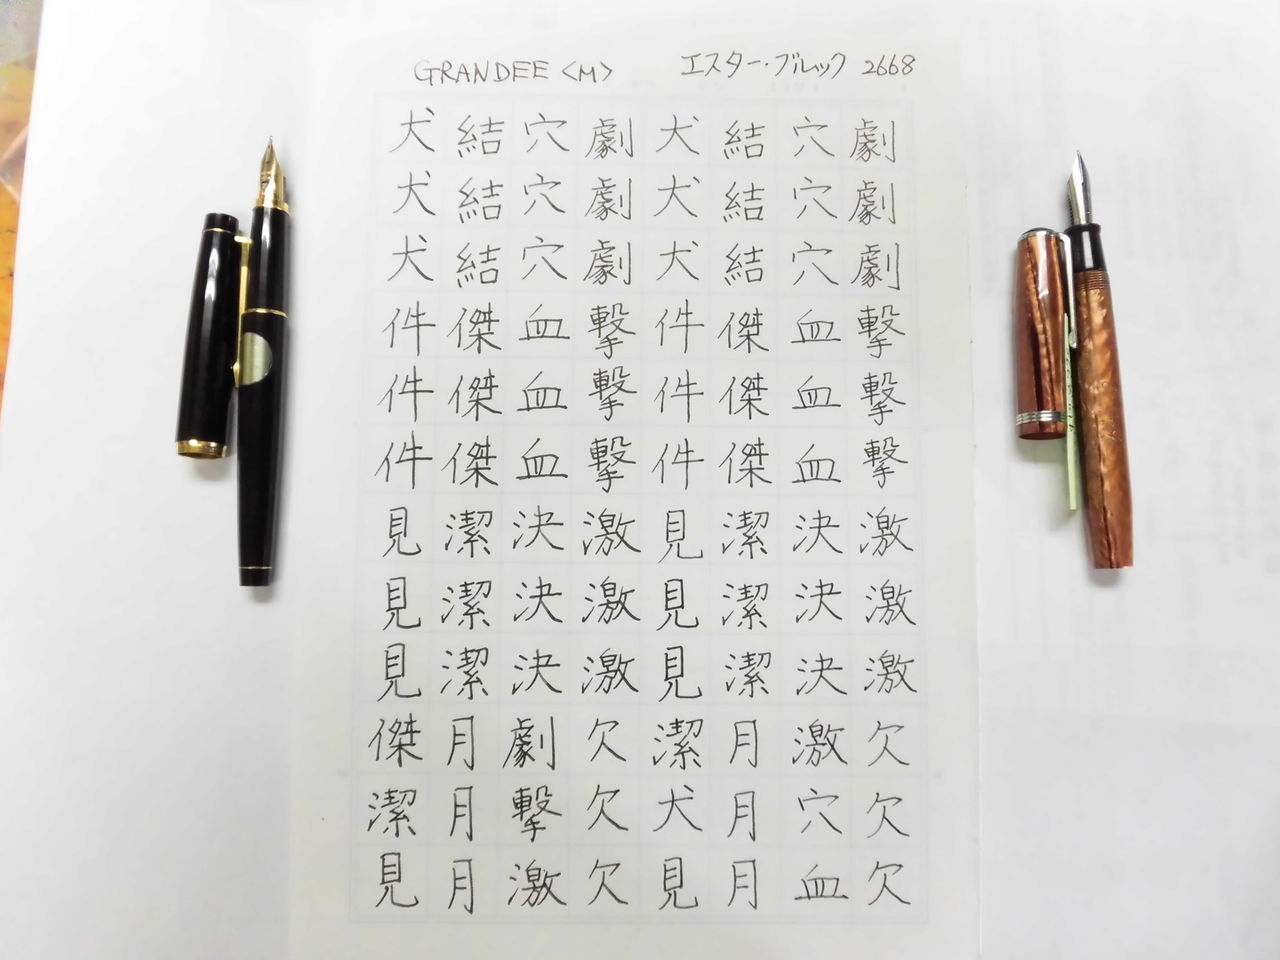 GRANDEE <M> エスターブルック 2668
犬結穴劇犬結穴劇
犬結穴劇犬結穴劇
犬結穴劇犬結穴劇
件傑血撃件傑血撃
件傑血撃件傑血撃
件傑血撃件傑血撃
見潔決激見潔決激
見潔決激見潔決激
見潔決激見潔決激
傑月劇欠潔月激欠
潔月撃欠犬月穴欠
見月激欠見月血欠